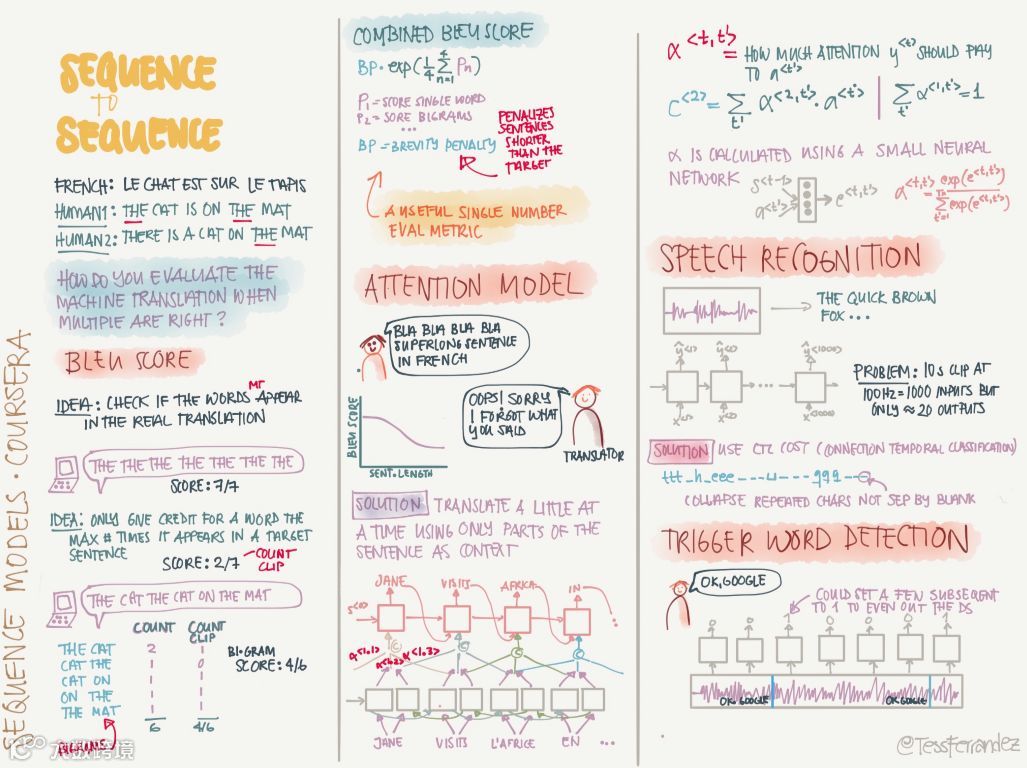 SEQUENCE MODELS · COURSERA
SEQUENCE
TO
SEQUENCE
FRENCH: LE CHAT EST SUR LE TAPIS
HUMAN1: THE CAT IS ON THE MAT
HUMAN2: THERE IS A CAT ON THE MAT
HOW DO YOU EVALUATE THE
MACHINE TRANSLATION WHEN
MULTIPLE ARE RIGHT?
BLEU SCORE
IDEA: CHECK IF THE WORDS MT APPEAR
IN THE REAL TRANSLATION
THE THE THE THE THE THE THE
SCORE: 7/7
IDEA: ONLY GIVE CREDIT FOR A WORD THE
MAX # TIMES IT APPEARS IN A TARGET
SENTENCE
SCORE: 2/7 COUNT
CLIP
THE CAT THE CAT ON THE MAT
COUNT COUNT
CLIP
THE CAT 2 1
CAT THE 1 0
CAT ON 1 1
ON THE 1 1
THE MAT 1 1
6 4/6
BI-GRAM
SCORE: 4/6
BIGRAMS
COMBINED BLEU SCORE
BP · exp(1/4 4∑n=1 Pn)
P1 = SCORE SINGLE WORD
P2 = SORE BIGRAMS
...
BP = BREVITY PENALTY
PENALIZES
SENTENCES
SHORTER
THAN THE
TARGET
A USEFUL SINGLE NUMBER
EVAL METRIC
ATTENTION MODEL
BLA BLA BLA BLA
SUPERLONG SENTENCE
IN FRENCH
OOPS! SORRY
I FORGOT WHAT
YOU SAID
TRANSLATOR
BLEU SCORE
SENT. LENGTH
SOLUTION TRANSLATE A LITTLE AT
A TIME USING ONLY PARTS OF THE
SENTENCE AS CONTEXT
JANE VISITS AFRICA IN ...
S<0>
C C C C
α<1,1> α<1,2> α<1,3>
JANE VISITS L'AFRICE EN ...
α<t,t'> = HOW MUCH ATTENTION y<t> SHOULD PAY
TO a<t'>
C<2> = ∑t' α<2,t'> · a<t'> | ∑t' α<1,t'> = 1
α IS CALCULATED USING A SMALL NEURAL
NETWORK
S<t-1>
a<t'>
e<t,t'>
α<t,t'> = exp(e<t,t'>) / Tx∑t'=1 exp(e<t,t'>)
SPEECH RECOGNITION
THE QUICK BROWN
FOX ...
ŷ<1> ŷ<2> ŷ<1000>
...
x<1> x<2> x<1000>
PROBLEM: 10s CLIP AT
100Hz = 1000 INPUTS BUT
ONLY ≈ 20 OUTPUTS
SOLUTION USE CTC COST (CONNECTION TEMPORAL CLASSIFICATION)
ttt_h_eee---⊔---qqq--
COLLAPSE REPEATED CHARS NOT SEP BY BLANK
TRIGGER WORD DETECTION
OK, GOOGLE
COULD SET A FEW SUBSEQENT
TO 1 TO EVEN OUT THE DS
0 0 1 0 0 0 1
OK GOOGLE OK GOOGLE
@TessFerrandez
九数跨境